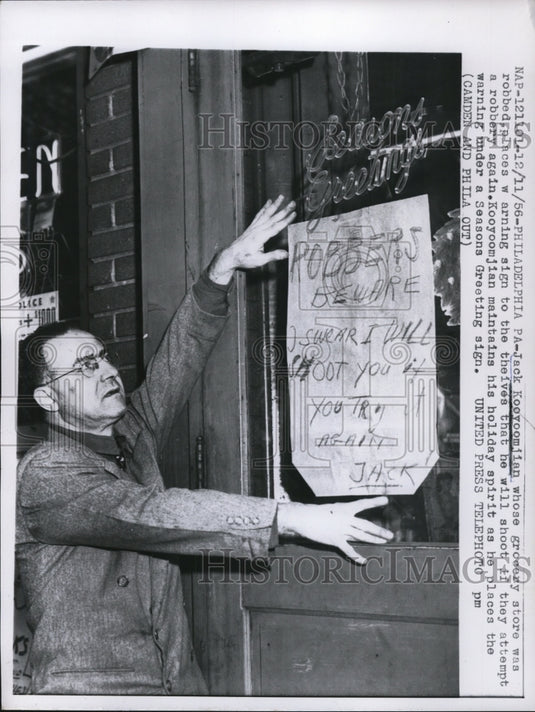 Seasons
Greetings
ROBBERS
BEWARE
I SWEAR I WILL
SHOOT YOU if
YOU TRY IT
AGAIN
JACK
EN
POLICE
1000
HISTORIC IMAGES
HISTORIC IMAGES
NAP-121101-12/11/56-PHILADELPHIA PA-Jack Kooyoomjian whose grocery store was
robbed, places w arning sign to the theives that he will shoot if they attempt
a robbery again. Kooyoomjian maintains his holiday spirit as he places the
warning under a Seasons Greeting sign. UNITED PRESS TELEPHOTO pm
(CAMDEN AND PHILA OUT)